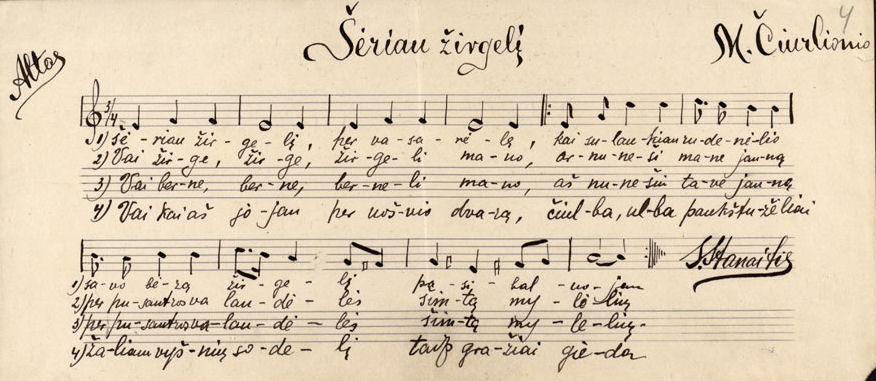 4
Šėriau žirgelį
M. Čiurlionio
Altas
3/4
1) šė-riau žir-ge-lį, per va-sa-rė-lę, kai su-lau-kiau ru-de-nė-lio
2) Vai žir-ge, žir-ge, žir-ge-li ma-no, ar nu-ne-ši ma-ne jau-ną
3) Vai ber-ne, ber-ne, ber-ne-li ma-no, aš nu-ne-šiu ta-ve jau-ną
4) Vai kai aš jo-jau per uoš-vio dva-rą, čiul-ba, ul-ba paukštu-žėliai
1) sa-vo bė-rą žir-ge-lį pa-si-bal-no-jau
2) per pu-santros va lan-dė-lės šim-tą my-lė-lių
3) per pu-santros va-lan-dė-lės šim-tą my-lė-lių.
4) ža-liam vyš-nių so-de-lį taip gra-žiai gie-da
S. Stanaitis